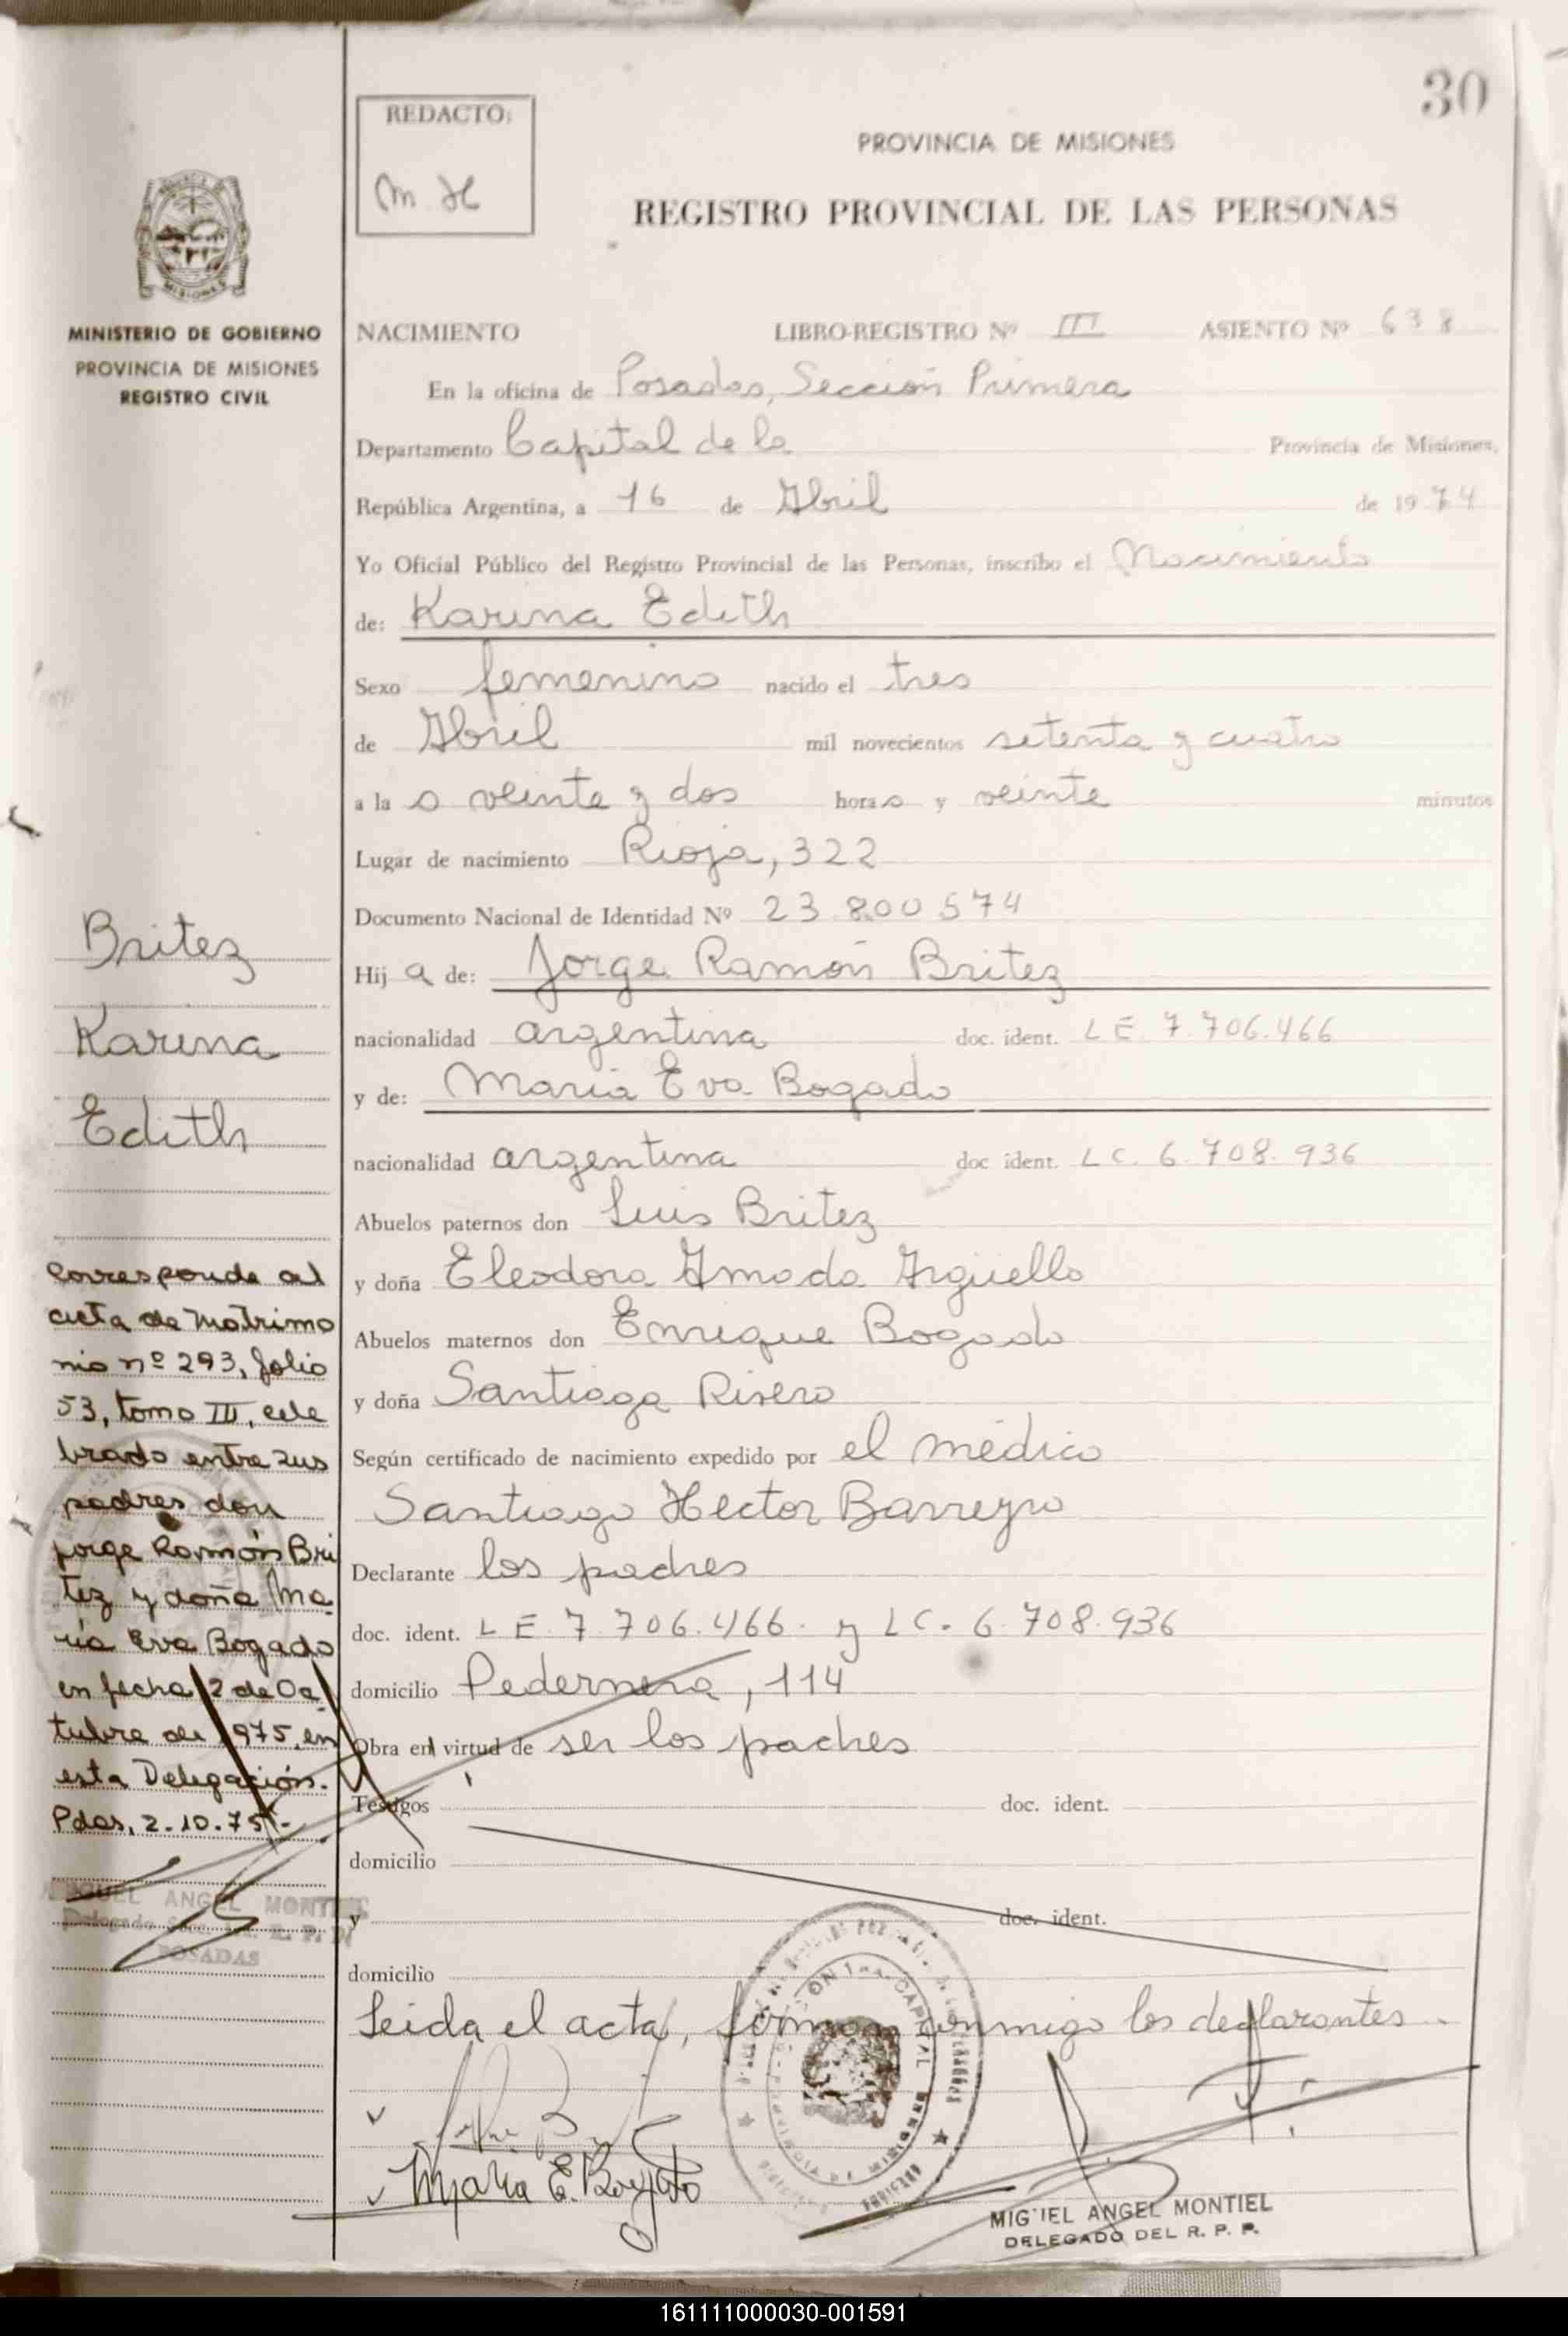 30
REDACTO:
PROVINCIA DE MISIONES
REGISTRO PROVINCIAL DE LAS PERSONAS
MISIONES
MINISTERIO DE GOBIERNO
PROVINCIA DE MISIONES
REGISTRO CIVIL
NACIMIENTO LIBRO-REGISTRO Nº III ASIENTO Nº 638
En la oficina de Posadas, Sección Primera
Departamento Capital de la Provincia de Misiones,
República Argentina, a 16 de Abril de 1974
Yo Oficial Público del Registro Provincial de las Personas, inscribo el Nacimiento
de: Karina Edith
Sexo femenino nacido el tres
de Abril mil novecientos setenta y cuatro
a la s veinte y dos horas y veinte minutos
Lugar de nacimiento Rioja, 322
Documento Nacional de Identidad Nº 23.800574
Hij a de: Jorge Ramón Britez
nacionalidad argentina doc. ident. LE. 7.706.466
y de: Maria Eva Bogado
nacionalidad argentina doc ident. LC. 6.708.936
Abuelos paternos don Luis Britez
y doña Eleodora Amada Argüello
Abuelos maternos don Enrique Bogado
y doña Santiaga Rivero
Según certificado de nacimiento expedido por el médico
Santiago Hector Barreyro
Declarante los padres
doc. ident. LE. 7.706.466. y LC. 6.708.936
domicilio Pedernera, 114
Obra en virtud de ser los padres
Testigos doc. ident.
domicilio
y doc. ident.
domicilio
Leida el acta, firman conmigo los declarantes.
Maria E. Bogado
MIGUEL ANGEL MONTIEL
DELEGADO DEL R. P. P.
Britez
Karina
Edith
Corresponde al
acta de Matrimo
nio nº 293, folio
53, tomo III, cele
brado entre sus
padres don
Jorge Ramón Bri
tez y doña Ma
ría Eva Bogado
en fecha 2 de Oc
tubre de 1975, en
esta Delegación.
Pdas, 2.10.75.-
MIGUEL ANGEL MONTIEL
POSADAS
161111000030-001591